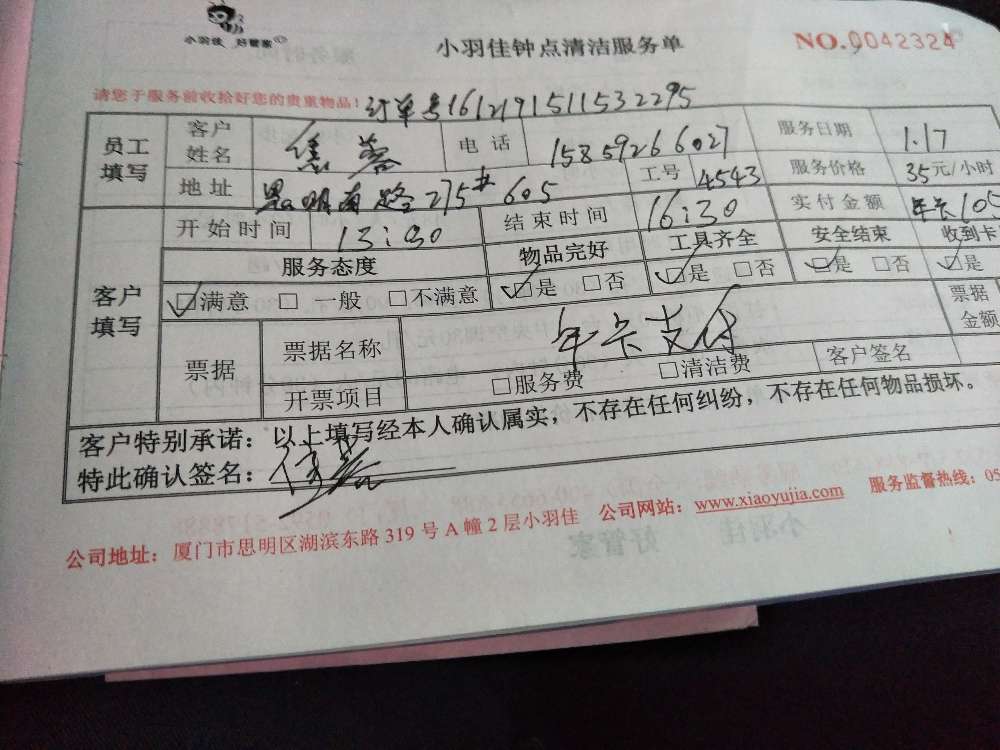 小羽佳 好管家
小羽佳钟点清洁服务单
NO.0042324
请您于服务前收拾好您的贵重物品! 订单号1612191511532295
员工填写 客户姓名 蓉 电话 15859266027 服务日期 1.17
地址 思明南路275# 605 工号 4543 服务价格 35元/小时
客户填写 开始时间 13:30 结束时间 16:30 实付金额 年卡105
服务态度 物品完好 工具齐全 安全结束 收到卡
☑满意 □一般 □不满意 ☑是 □否 ☑是 □否 ☑是 □否 ☑是
票据 票据名称 年卡支付 票据金额
开票项目 □服务费 □清洁费 客户签名
客户特别承诺：以上填写经本人确认属实，不存在任何纠纷，不存在任何物品损坏。
特此确认签名：
公司地址：厦门市思明区湖滨东路319号A幢2层小羽佳 公司网站：www.xiaoyujia.com 服务监督热线：05